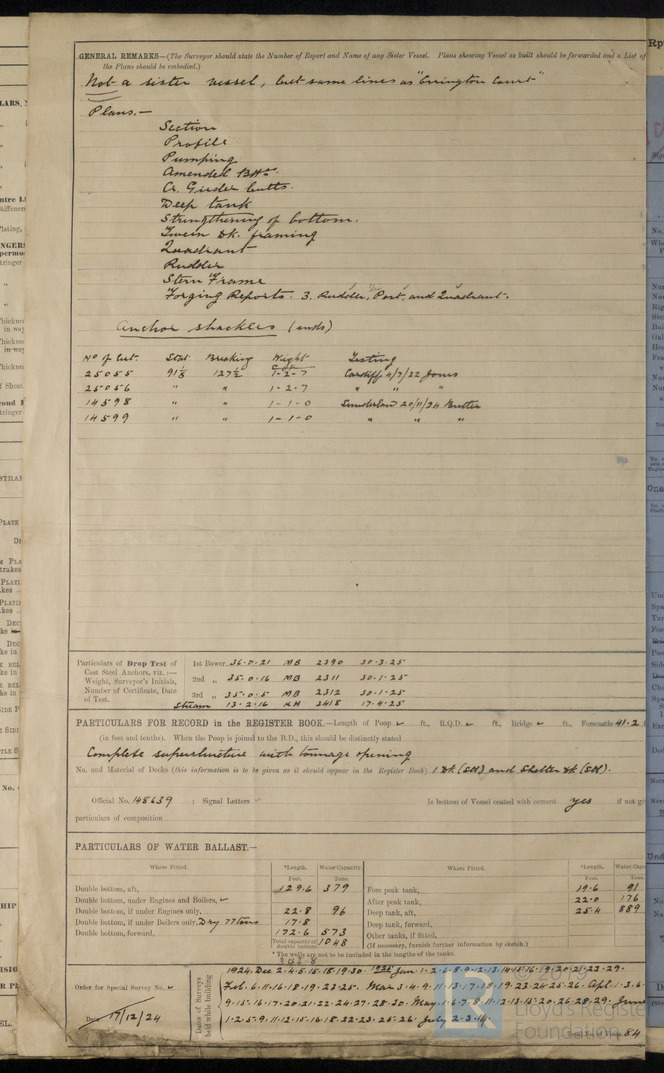 GENERAL REMARKS—(The Surveyor should state the Number of Report and Name of any Sister Vessel. Plans showing Vessel as built should be forwarded and a List of
the Plans should be embodied.)
Not a sister vessel, but same lines as "Errington Court"
Plans.—
Section
Profile
Pumping
Amended BHds.
Cr. Girder butts.
Deep tank
Strengthening of bottom.
Tween dk. framing
Quadrant
Rudder
Stern Frame
Forging Reports. 3. Rudder, Post, and Quadrant.
Anchor shackles (ends)
No of Cert. Stat Breaking Weight Testing
25055 91⅛ 127½ 1-2-7 Cardiff 4/7/22 Jones
25056 " " 1-2-7 " " "
14598 " " 1-1-0 Sunderland 20/11/24 Butter
14599 " " 1-1-0 " " "
Particulars of Drop Test of
Cast Steel Anchors, viz. :—
Weight, Surveyor's Initials,
Number of Certificate, Date
of Test.
1st Bower 36-0-21 MB 2390 30-3-25
2nd " 35-0-16 MB 2311 30-1-25
3rd " 35-0-5 MB 2312 30-1-25
Stream 13-2-16 KH 3418 17-4-25
PARTICULARS FOR RECORD in the REGISTER BOOK.—Length of Poop ft., R.Q.D. ft., Bridge ft., Forecastle 41.2
(in feet and tenths). When the Poop is joined to the B.D., this should be distinctly stated
Complete superstructure with tonnage opening
No. and Material of Decks (this information is to be given as it should appear in the Register Book) 1 Dk (Stl) and Shelter Dk (Stl).
Official No. 148639 ; Signal Letters Is bottom of Vessel coated with cement yes if not
particulars of composition
PARTICULARS OF WATER BALLAST.—
Where Fitted. *Length. Water Capacity. Where Fitted. *Length.
Feet. Tons. Feet. Tons.
Double bottom, aft, 129.6 379 Fore peak tank, 19.6 91
Double bottom, under Engines and Boilers, After peak tank, 22.0 176
Double bottom, if under Engines only, 22.8 96 Deep tank, aft, 25.4 889
Double bottom, if under Boilers only, Dry 77 tons 17.8 Deep tank, forward,
Double bottom, forward, 172.6 573 Other tanks, if fitted,
Total capacity of double bottom 1048 (If necessary, furnish further information by sketch.)
* The wells are not to be included in the lengths of the tanks.
342.8
Order for Special Survey No.
Date 17/12/24
Dates of Surveys
held while building
1924. Dec 2.4.5.15.18.19.30. 1925 Jan 1.2.6.8.9.12.13.14.15.16.19.20.21.22.29.
Feb. 6.11.16.18.19.23.25. Mar 3.4.9.11.13.17.18.19.23.24.25.26. Apl 1.3.6.
9.15.16.17.20.21.22.24.27.28.30. May 1.6.7.8.11.12.13.15.20.26.28.29. June
1.2.5.9.11.12.15.16.18.22.23.25.26. July 2.3.14.
Total No. of Visits 84
© 2019
Lloyd's Register
Foundation